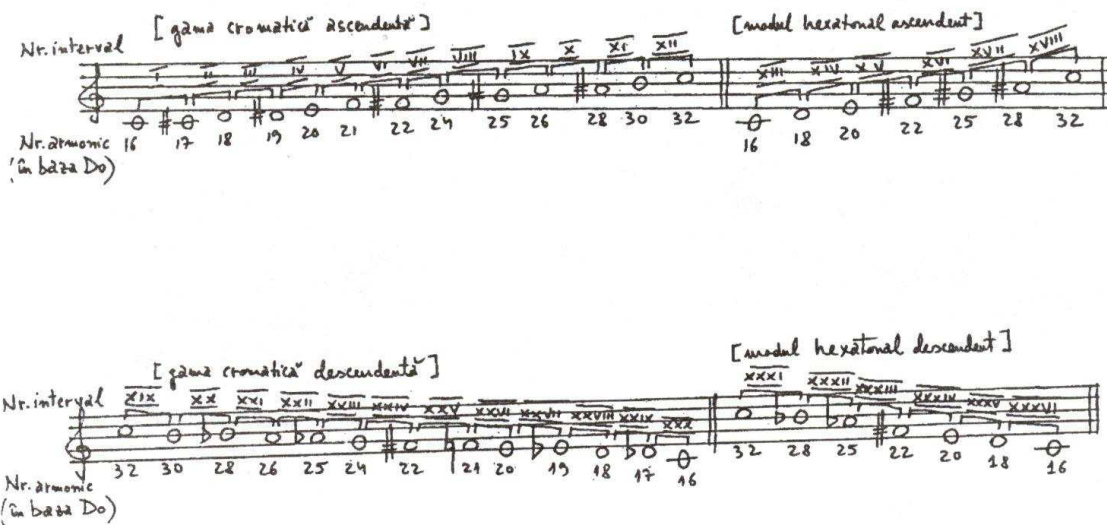 [gama cromatică ascendentă]
[modul hexatonal ascendent]
Nr. interval
I II III IV V VI VII VIII IX X XI XII
XIII XIV XV XVI XVII XVIII
Nr. armonic 16 17 18 19 20 21 22 24 25 26 28 30 32
16 18 20 22 25 28 32
(în baza Do)
[gama cromatică descendentă]
[modul hexatonal descendent]
Nr. interval
XIX XX XXI XXII XXIII XXIV XXV XXVI XXVII XXVIII XXIX XXX
XXXI XXXII XXXIII XXXIV XXXV XXXVI
32 30 28 26 25 24 22 21 20 19 18 17 16
32 28 25 22 20 18 16
Nr. armonic
(în baza Do)